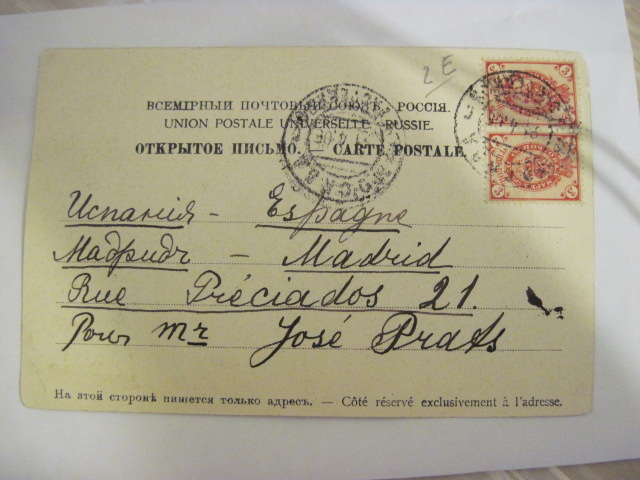 2 E
ВСЕМІРНЫЙ ПОЧТОВЫЙ СОЮЗЪ. РОССІЯ.
UNION POSTALE UNIVERSELLE. RUSSIE.
ОТКРЫТОЕ ПИСЬМО. — CARTE POSTALE.
Испанія - Espagne
Мадридъ - Madrid
Rue Préciados 21.
Pour Mr José Prats
На этой сторонѣ пишется только адресъ. — Côté réservé exclusivement à l'adresse.